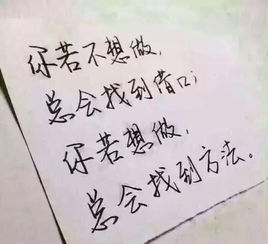 你若不想做，
总会找到借口；
你若想做，
总会找到方法。